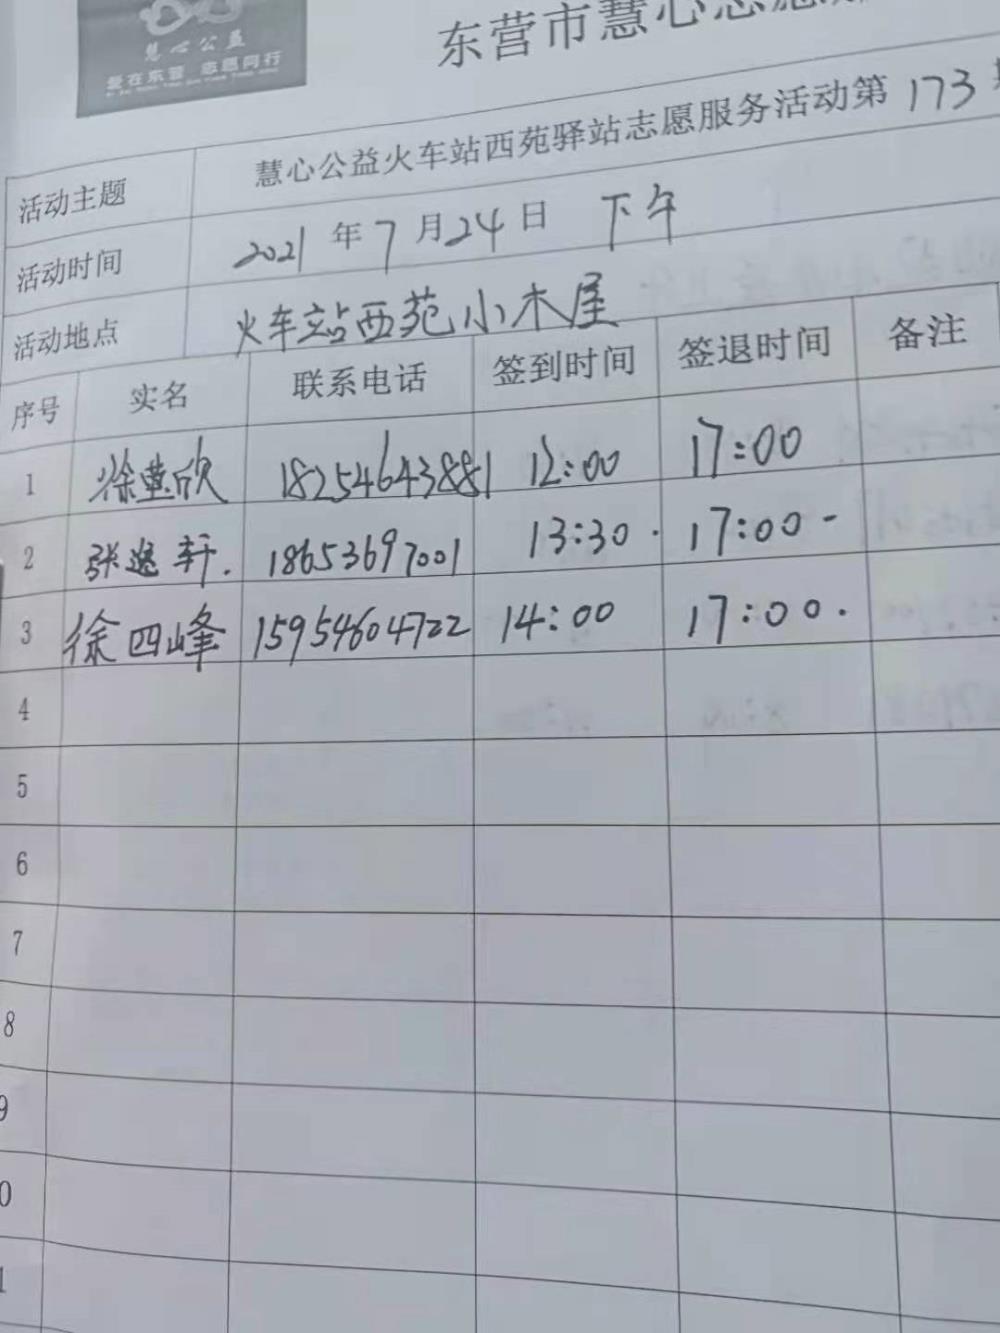 慧心公益
爱在东营 志愿同行
东营市慧心志愿
活动主题 慧心公益火车站西苑驿站志愿服务活动第173期
活动时间 2021年7月24日 下午
活动地点 火车站西苑小木屋
序号 实名 联系电话 签到时间 签退时间 备注
1 徐燕欣 18254643881 12:00 17:00
2 张逸轩. 18653697001 13:30. 17:00-
3 徐四峰 15954604722 14:00 17:00.
4
5
6
7
8
9
0
1